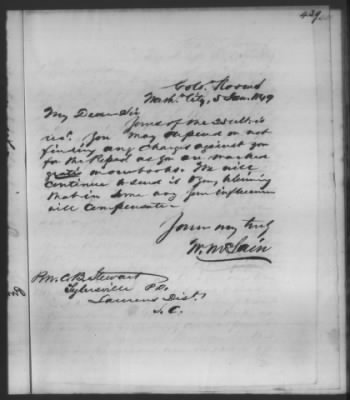 429
Colo. Rooms
Wash. City, 5 Jan. 1849
My Dear Sir
Yours of the 30 ult is
rec. You may depend on not
finding any charges against you
for the Repos. as you are marked
gratis on our books. We will
continue to send it to you, believing
that in some way your influence
will compensate.
Yours very truly
W. McLain
Rev. C. B. Stewart
Tylersville P.O.
Laurens Dist.
S. C.